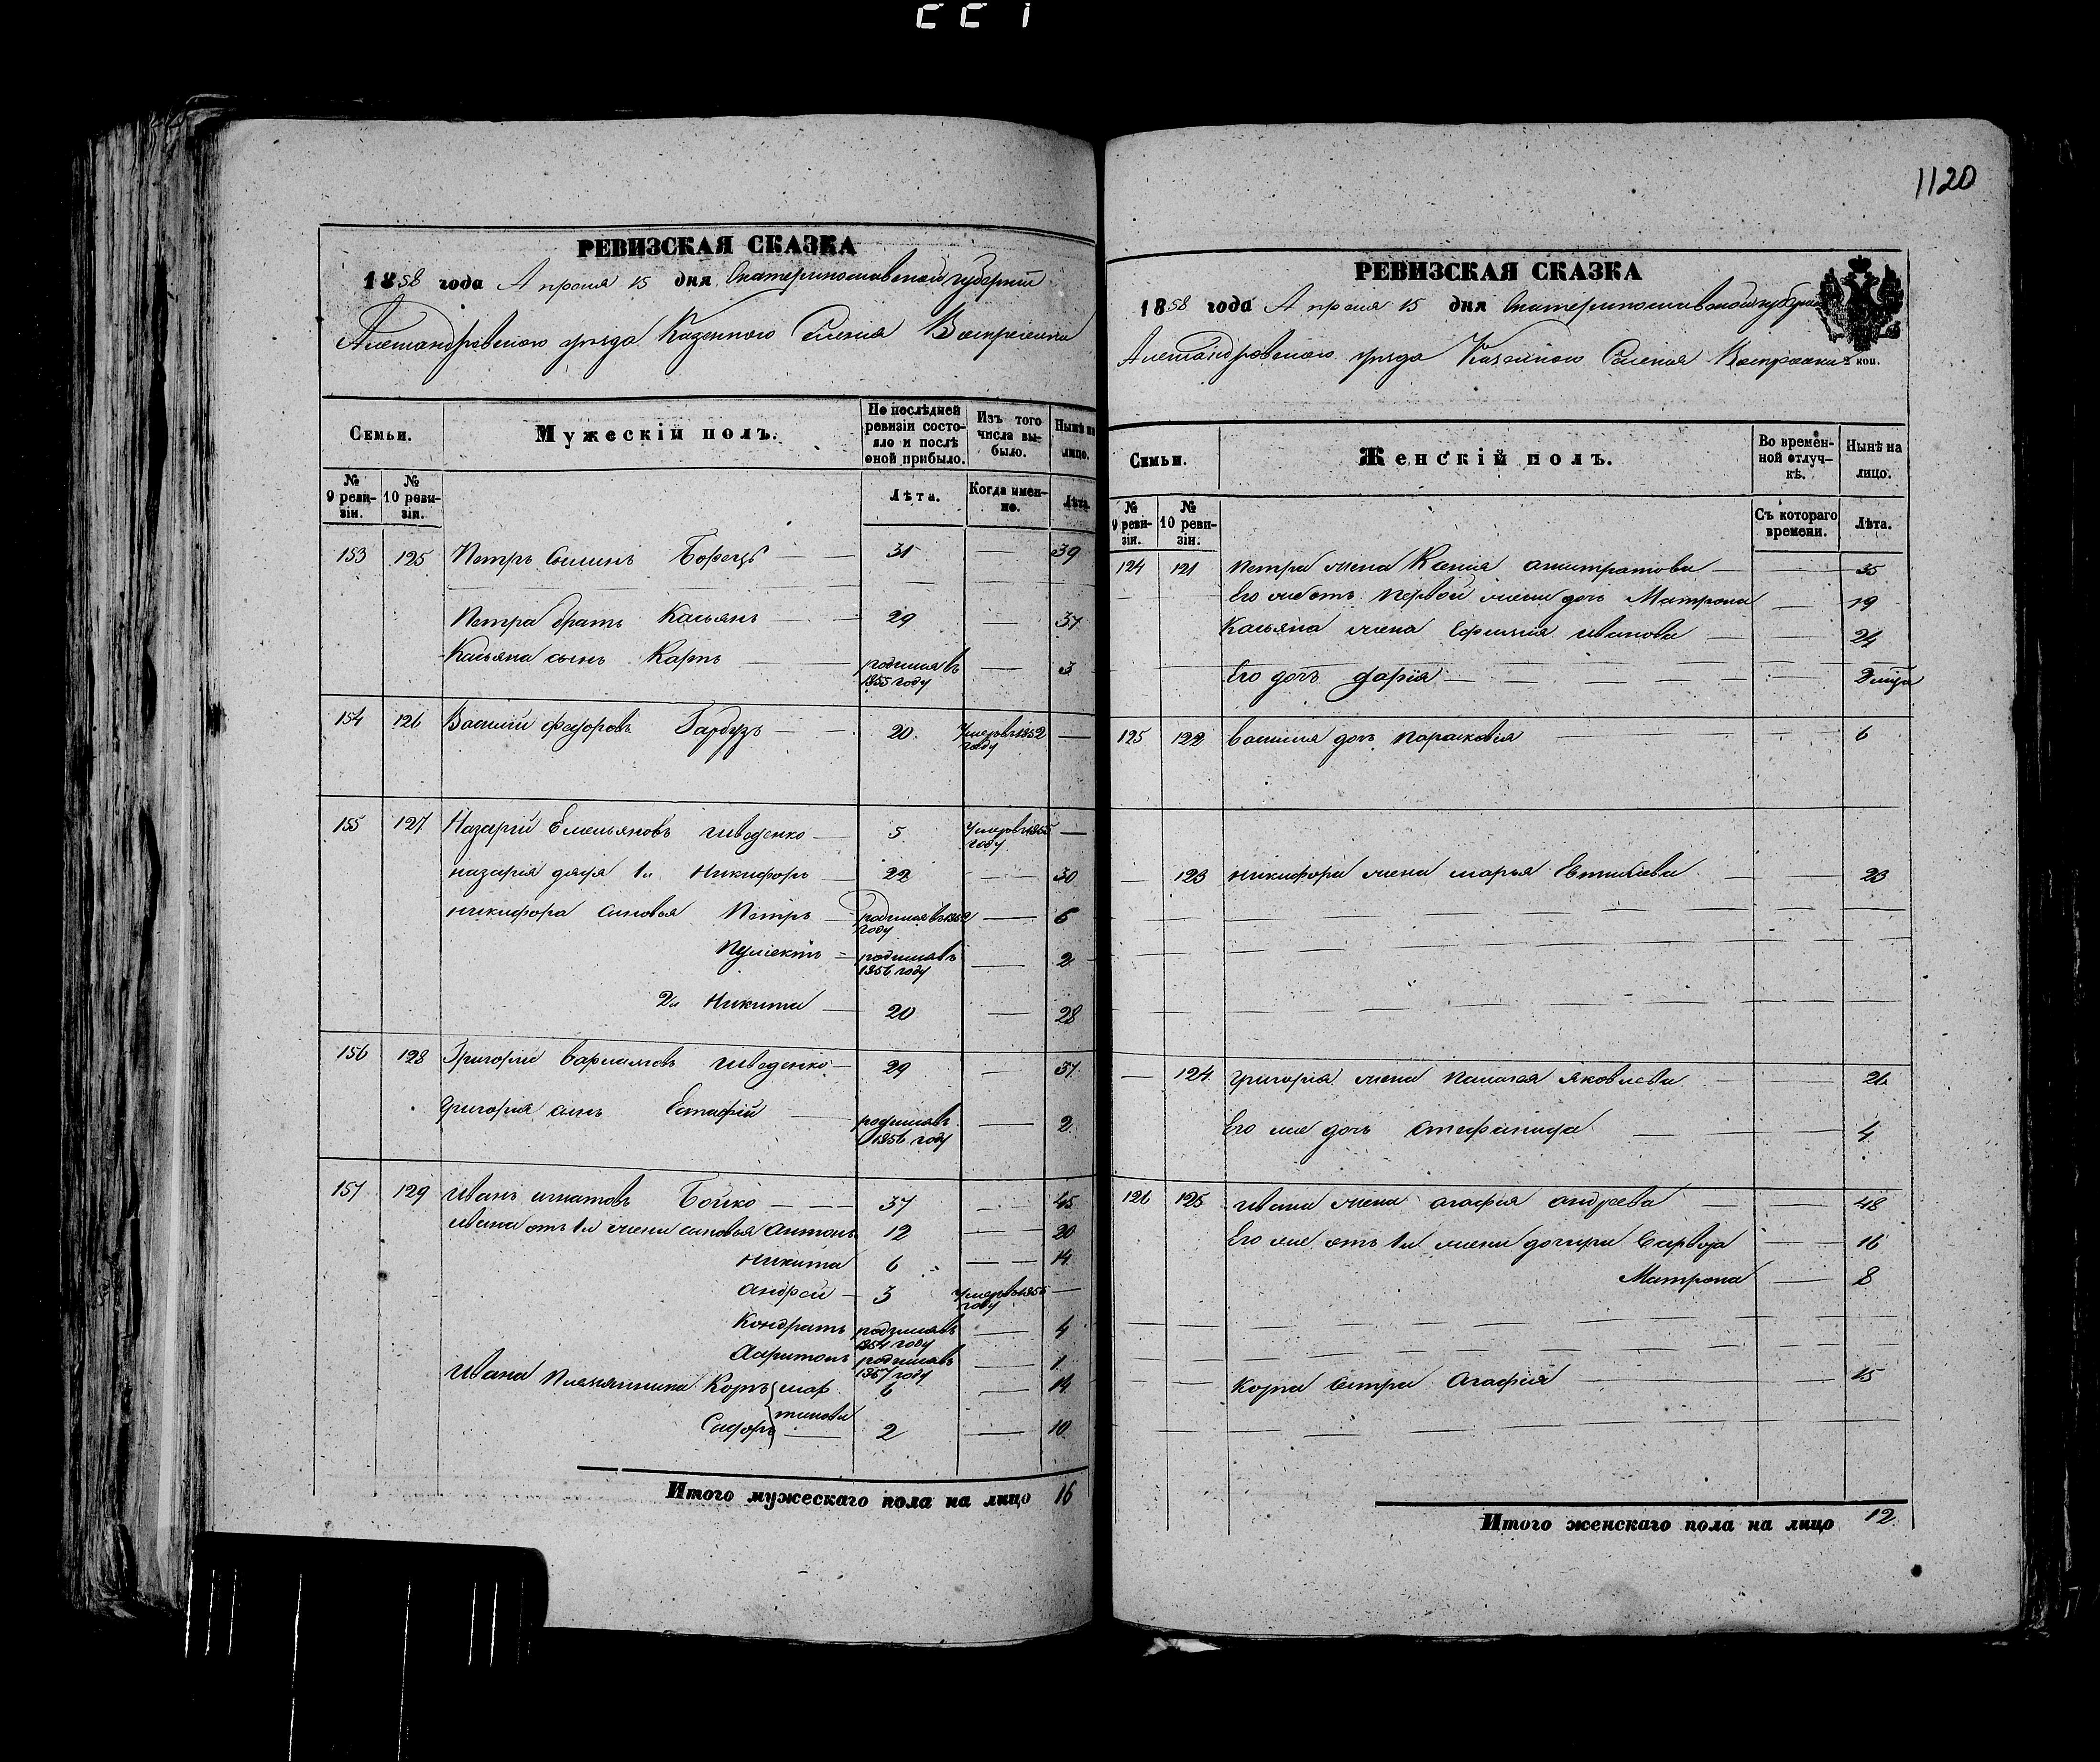 1120
РЕВИЗСКАЯ СКАЗКА
1858 года Апреля 15 дня Екатеринославской губернии
Александровского уезда Казенного Селения Воскресенки
Семьи.
Мужескій полъ.
По послѣдней ревизіи состояло и послѣ оной прибыло.
Изъ того числа выбыло.
Нынѣ на лицо.
№ 9 ревизіи.
№ 10 ревизіи.
Лѣта.
Когда именно.
Лѣта.
153 125 Петръ Силинъ Борецъ 31 — 39
Петра братъ Касьянъ 29 — 37
Касьяна сынъ Карпъ родился въ 1855 году — 3
154 126 Василий Федоровъ Гарбузъ 20 Умеръ в 1852 году —
155 127 Назарий Емельяновъ Шведенко 5 Умеръ в 1855 году —
Назария дядя 1й Никифоръ 22 — 30
Никифора сыновья Петръ родился въ 1852 году — 6
родился въ 1856 году — 2
2й Никита 20 — 28
156 128 Григорий Варламовъ Шведенко 29 — 37
Григория сынъ Естафій родился въ 1856 году — 2
157 129 Иванъ Игнатовъ Бойко 37 — 45
Ивана отъ 1й жены сыновья Антонъ 12 — 20
Никита 6 — 14
Андрей 3 Умеръ в 1855 году —
Кондратъ родился въ 1854 году — 4
Харитонъ родился въ 1857 году — 1
Ивана племянники Корнъ мартинови 6 — 14
Сидоръ 2 — 10
Итого мужескаго пола на лицо 16
РЕВИЗСКАЯ СКАЗКА
1858 года Апреля 15 дня Екатеринославской губернии
Александровского уезда Казенного Селения Воскресенки
2 коп.
Семьи.
Женскій полъ.
Во временной отлучкѣ.
Нынѣ на лицо.
№ 9 ревизіи.
№ 10 ревизіи.
Съ котораго времени.
Лѣта.
124 121 Петра жена Ксенія — 35
Его же отъ первой жены дочь Матрона — 19
Касьяна жена Ефимия Иванова — 21
Его дочь Дарія —
125 122 Василия дочь Парасковія 6
123 Никифора жена Марья — 23
124 Григорія жена Палагея Яковлева — 26
Его же дочь Стефанида — 4
126 125 Ивана жена Агафія Андреева — 48
Его же отъ 1й жены дочери — 16
Матрона — 8
Корна сестра Агафія — 15
Итого женскаго пола на лицо 12